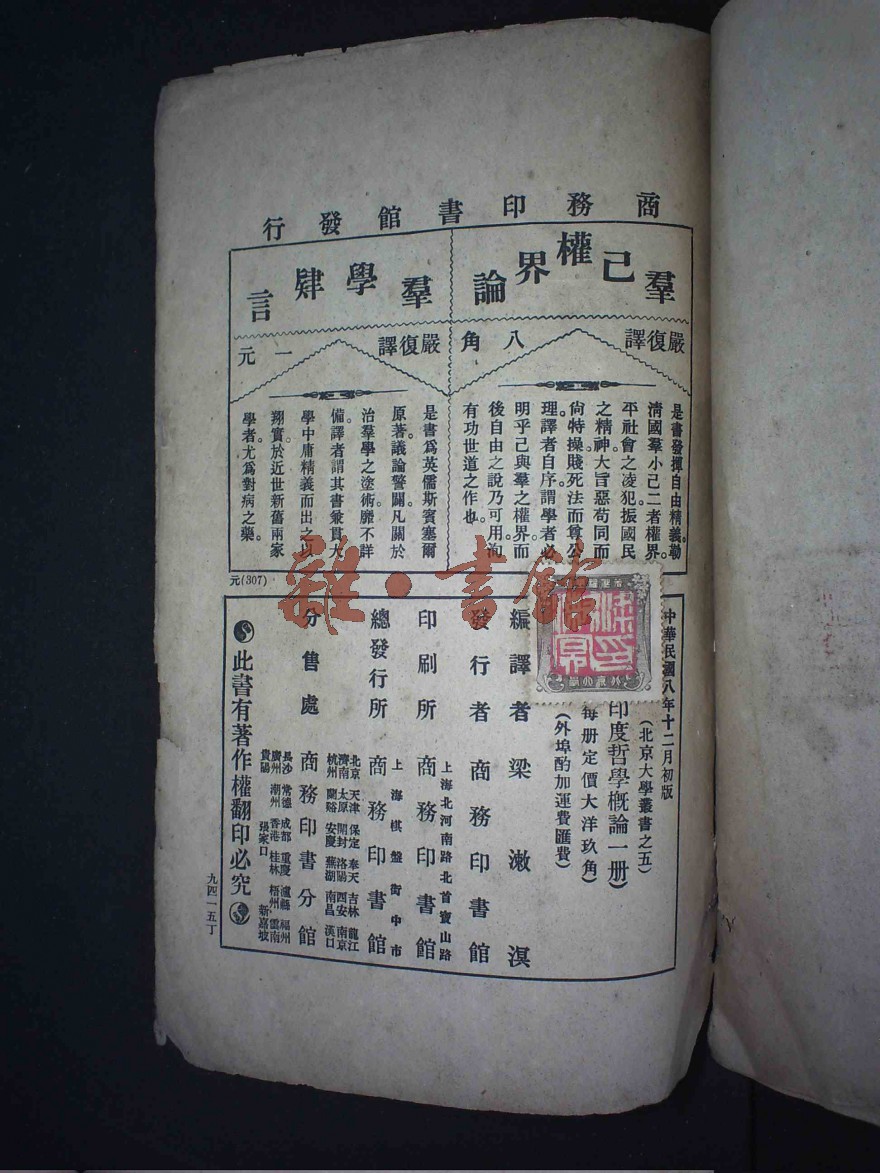 商務印書館發行
羣己權界論
嚴復譯
八角
是書發揮自由精義。勒
清國羣小己二者權界。
平社會之凌犯。振國民
之精神。大旨惡苟同而
尙特操。賤死法而尊公
理。譯者自序。謂學者必
明乎己與羣之權界。而
後自由之說乃可用。洵
有功世道之作也。
羣學肄言
嚴復譯
一元
是書爲英儒斯賓塞爾
原著。議論警闢。凡關於
治羣學之塗術。靡不詳
備。譯者謂其書兼貫大
學中庸精義。而出之以
翔實。於近世新舊兩家
學者。尤爲對病之藥。
元(307)
中華民國八年十二月初版
(北京大學叢書之五)
印度哲學槪論一册)
每册定價大洋玖角)
(外埠酌加運費匯費)
編譯者 梁漱溟
發行者 商務印書館
上海北河南路北首寶山路
印刷所 商務印書館
上海棋盤街中市
總發行所 商務印書館
北京 天津 保定 奉天 吉林 龍江
濟南 太原 開封 洛陽 西安 南京
杭州 蘭谿 安慶 蕪湖 南昌 漢口
分售處 商務印書分館
長沙 常德 成都 重慶 瀘縣 福州
廣州 潮州 香港 桂林 梧州 雲南
貴陽 張家口 新嘉坡
此書有著作權翻印必究
九四一五丁
雜·書館